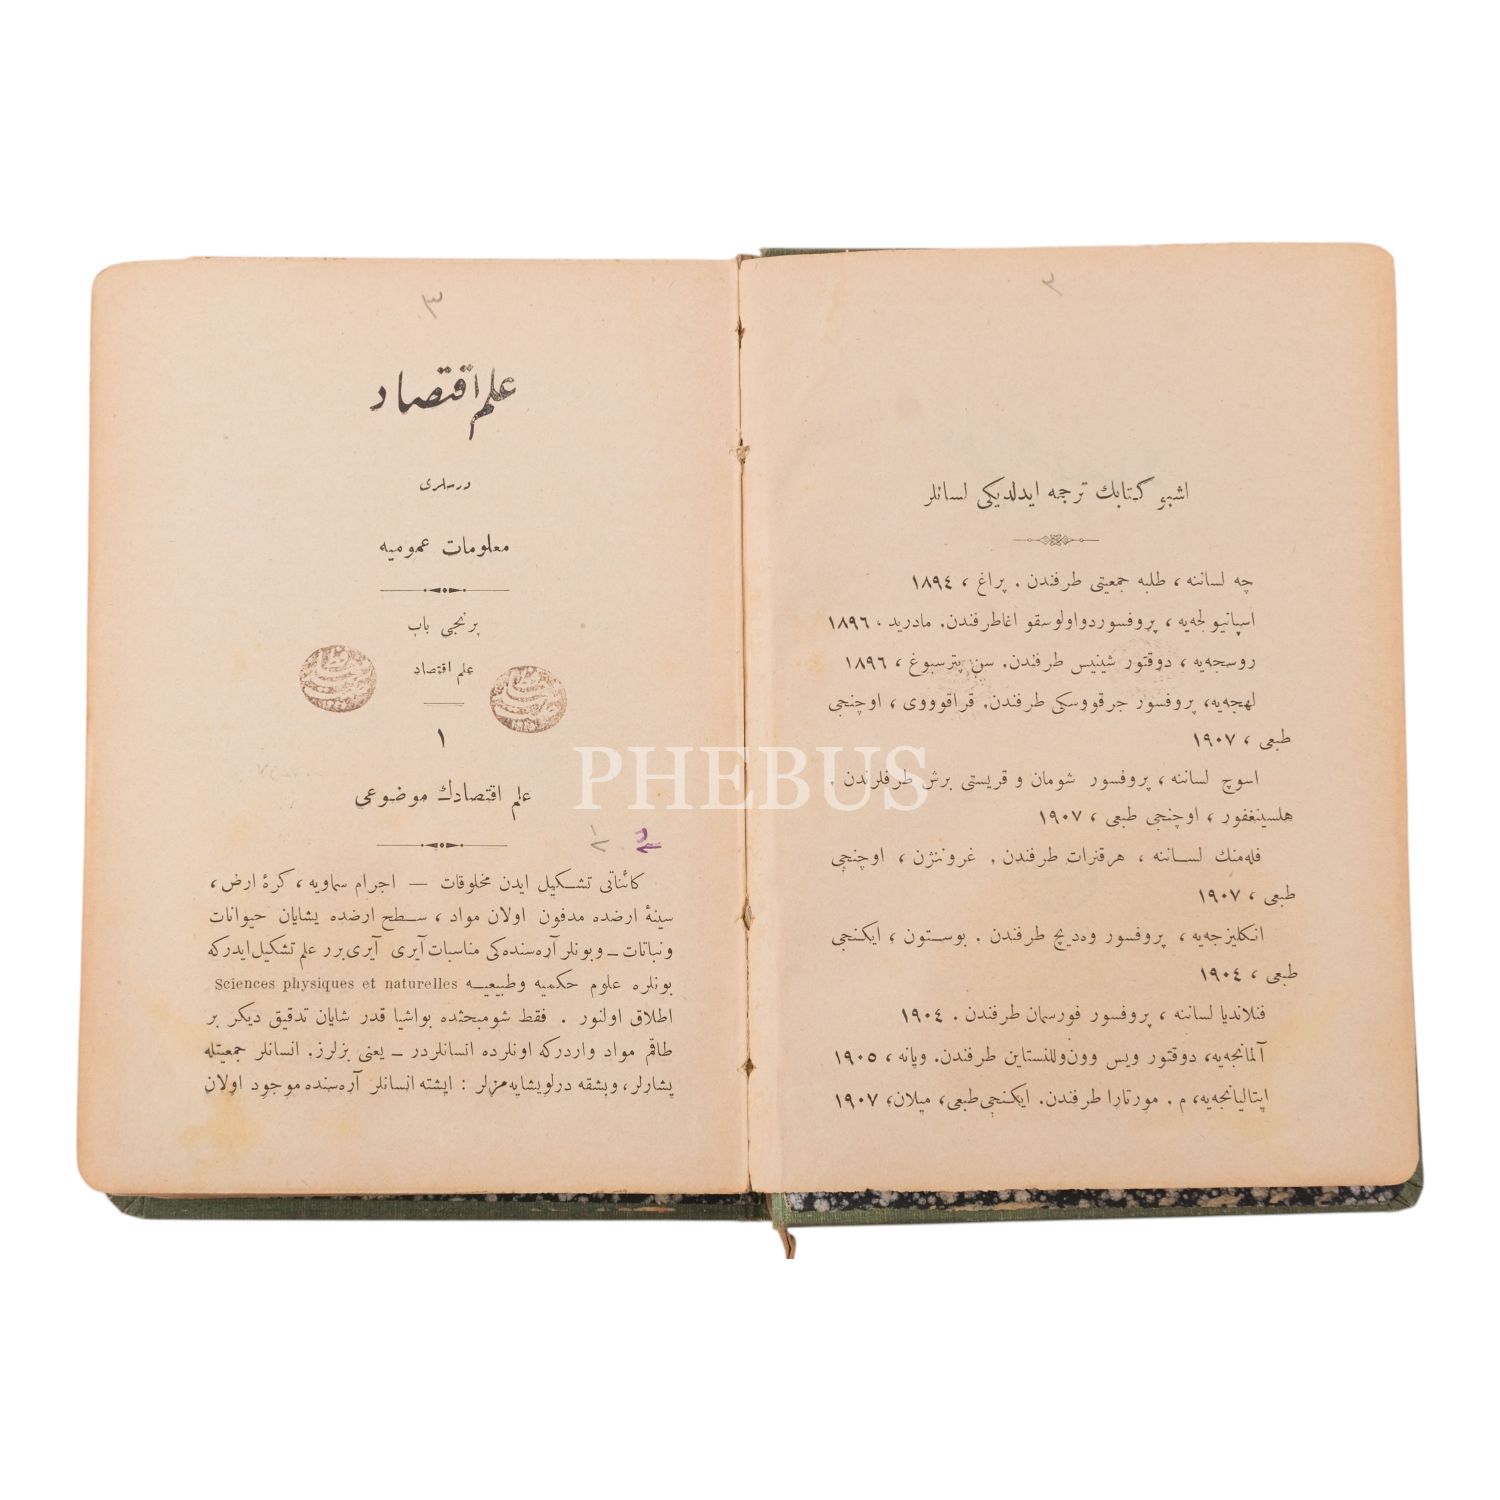 ٣
اشبو كتابك ترجمه ايدلديكى لسانلر
چه لساننه ، طلبه جمعيتى طرفندن . پراغ ، ١٨٩٤
اسپانيولجه‌يه ، پروفسور دو اولوسقو اغا طرفندن. مادريد ، ١٨٩٦
روسجه‌يه ، دوقتور شينيس طرفندن. سن پترسبوغ ، ١٨٩٦
لهجه‌يه، پروفسور جرقووسكى طرفندن. قراقووى ، اوچنجى
طبعى ، ١٩٠٧
اسوچ لساننه ، پروفسور شومان و قريستى برش طرفلرندن .
هلسينغفور ، اوچنجى طبعى ، ١٩٠٧
فله‌منك لساننه ، هرقنرات طرفندن . غرونتژن ، اوچنجى
طبعى ، ١٩٠٧
انكليزجه‌يه ، پروفسور وه‌ديچ طرفندن . بوستون ، ايكنجى
طبعى ، ١٩٠٤
فنلانديا لساننه ، پروفسور فورسمان طرفندن . ١٩٠٤
آلمانجه‌يه، دوقتور ويس وون وللنستاين طرفندن. ويانه ، ١٩٠٥
ايتاليانجه‌يه، م . مورتارا طرفندن. ايكنجى طبعى، ميلان، ١٩٠٧
٣
علم اقتصاد
درسلرى
معلومات عموميه
برنجى باب
علم اقتصاد
١
علم اقتصادك موضوعى
كائناتى تشكيل ايدن مخلوقات — اجرام سماويه ، كرۀ ارض ،
سينۀ ارضده مدفون اولان مواد ، سطح ارضده يشايان حيوانات
ونباتات — وبونلر آره‌سنده‌كى مناسبات آيرى آيرى برر علم تشكيل ايدركه
بونلره علوم حكميه وطبيعيه Sciences physiques et naturelles
اطلاق اولنور . فقط شومبحثده بواشيا قدر شايان تدقيق ديكر بر
طاقم مواد واردركه اونلرده انسانلردر — يعنى بزلرز. انسانلر جمعيتله
يشارلر ، وبشقه درلويشايه‌مزلر : ايشته انسانلر آره‌سنده موجود اولان
PHEBUS